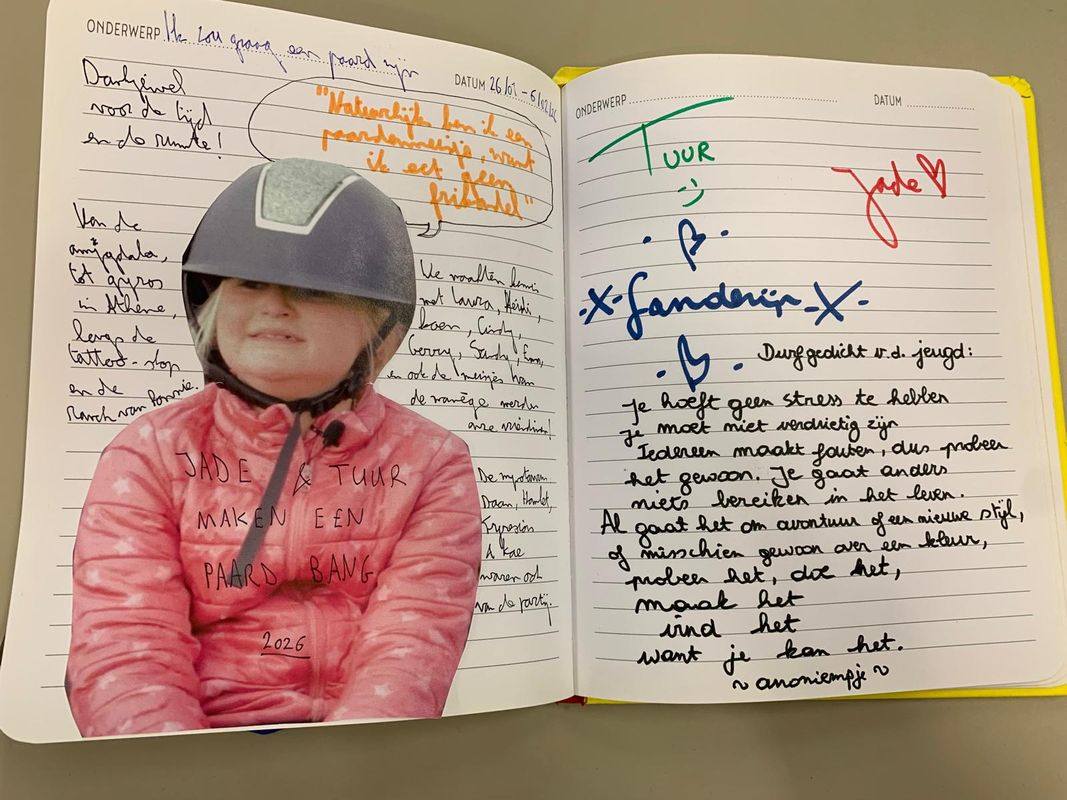 ONDERWERP Ik zou graag een paard zijn
DATUM 26/01 - 6/02/26
Dankjewel
voor de tijd
en de ruimte!
"Natuurlijk ben ik een
paardenmeisje, want
ik eet geen
frikandel"
Van de
amygdala,
tot gyros
in Athene,
langs de
tattoo-shop
en de
Ranch van Bonnie.
We maakten kennis
met Laura, Heidi,
Koen, Cindy,
Gerry, Sandy, Emma,
en ook de meisjes van
de manège werden
onze vriendinnen!
De mysterieuze
Daan, Hamlet,
&
waren ook
van de partij.
JADE & TUUR
MAKEN EEN
PAARD BANG
2026
ONDERWERP
DATUM
TUUR
:)
Jade ♡
-X- Sanderijn -X-
Durfgedicht v.d. jeugd:
Je hoeft geen stress te hebben
Je moet niet verdrietig zijn
Iedereen maakt fouten, dus probeer
het gewoon. Je gaat anders
niets bereiken in het leven.
Al gaat het om avontuur of een nieuwe stijl,
of misschien gewoon over een kleur,
probeer het, doe het,
maak het
vind het
want je kan het.
~ anoniempje ~